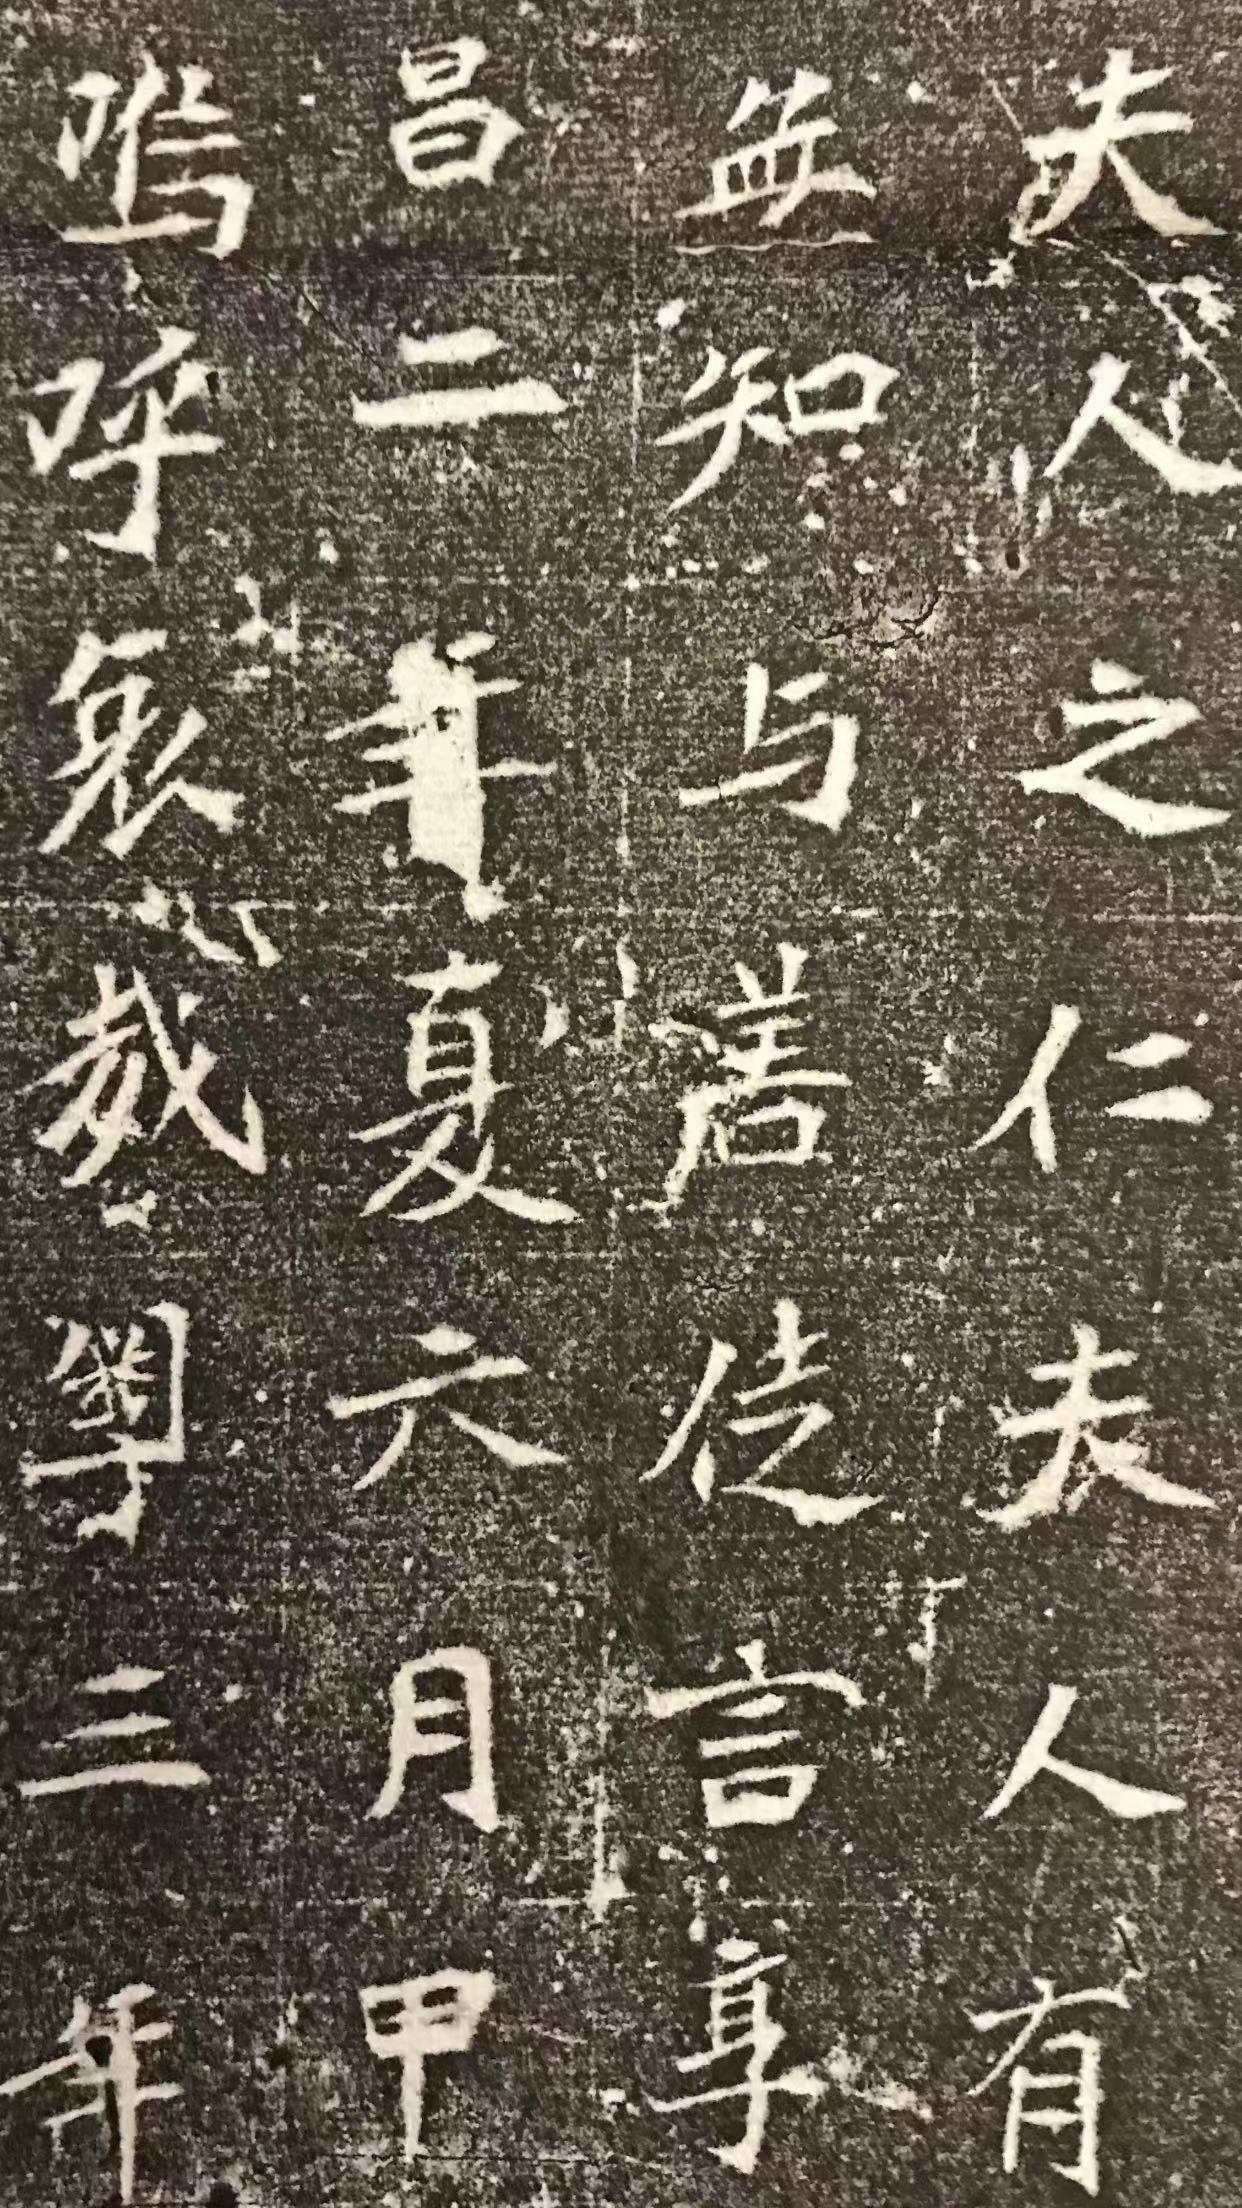 夫人之仁夫人有
無知与善徒言享
昌二年夏六月甲
嗚呼哀哉粵三年